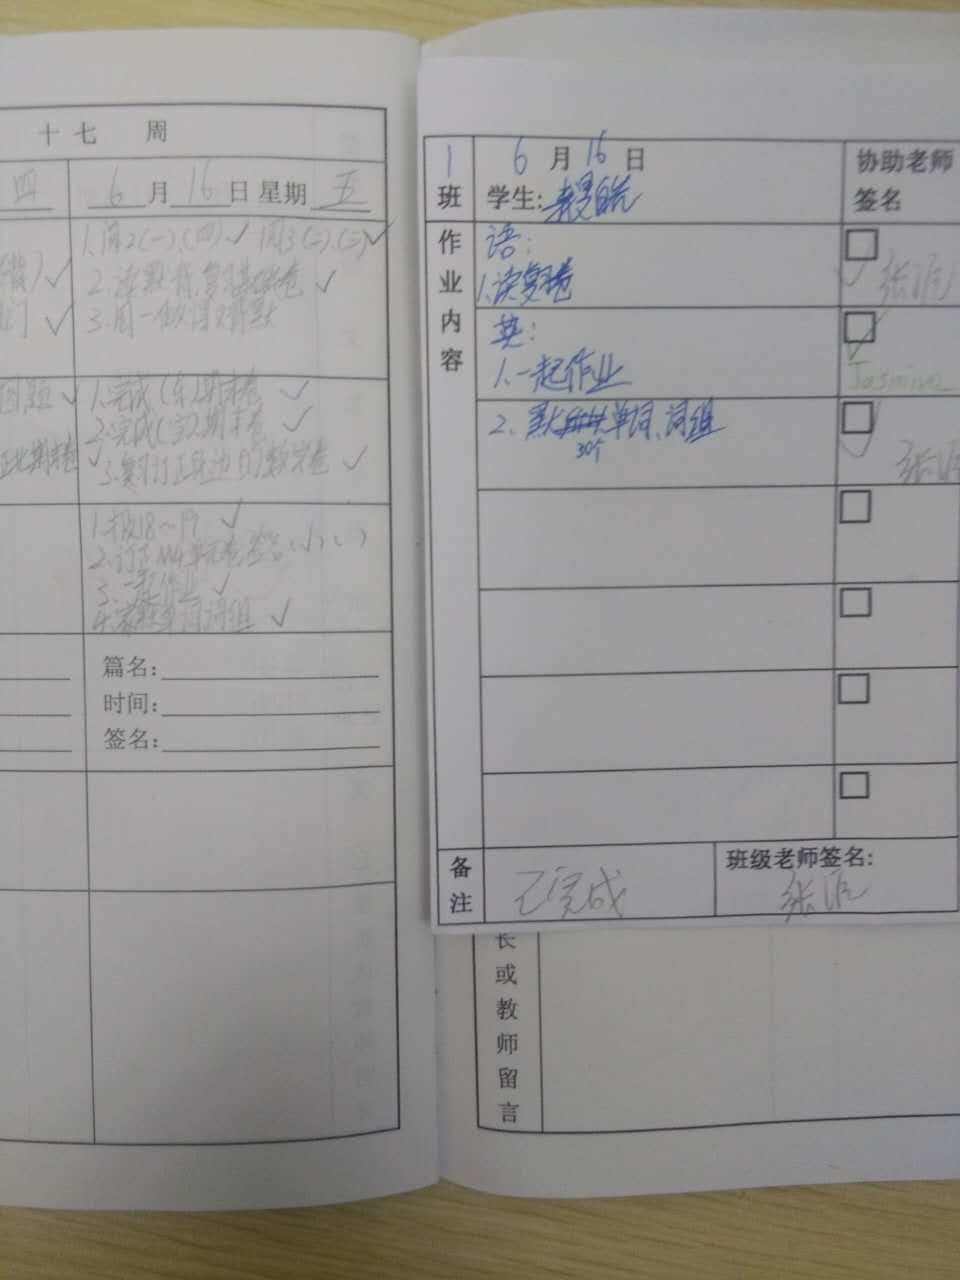 十七 周
四
6月16日 星期五
1.周2(一)(四)✓ 周3(二)(三)✓
✓
2.读默背,复习基础卷 ✓
✓
3.周一做
默
题 ✓
1.完成(车)期末卷 ✓
2.完成(宝)期末卷 ✓
期末卷 ✓
3.复习订正身边的数学卷 ✓
1.报18~19 ✓
2.订正M4单元卷,签名(√)( )
3.一起作业 ✓
4.家默单词词组 ✓
篇名:
时间:
签名:
1班
6月16日
学生:
协助老师签名
作业内容
语:
1.读复习卷
张
英:
1.一起作业
Jasmine
2.默 单词、词组
30个
张
备注
已完成
班级老师签名:
张
长或教师留言